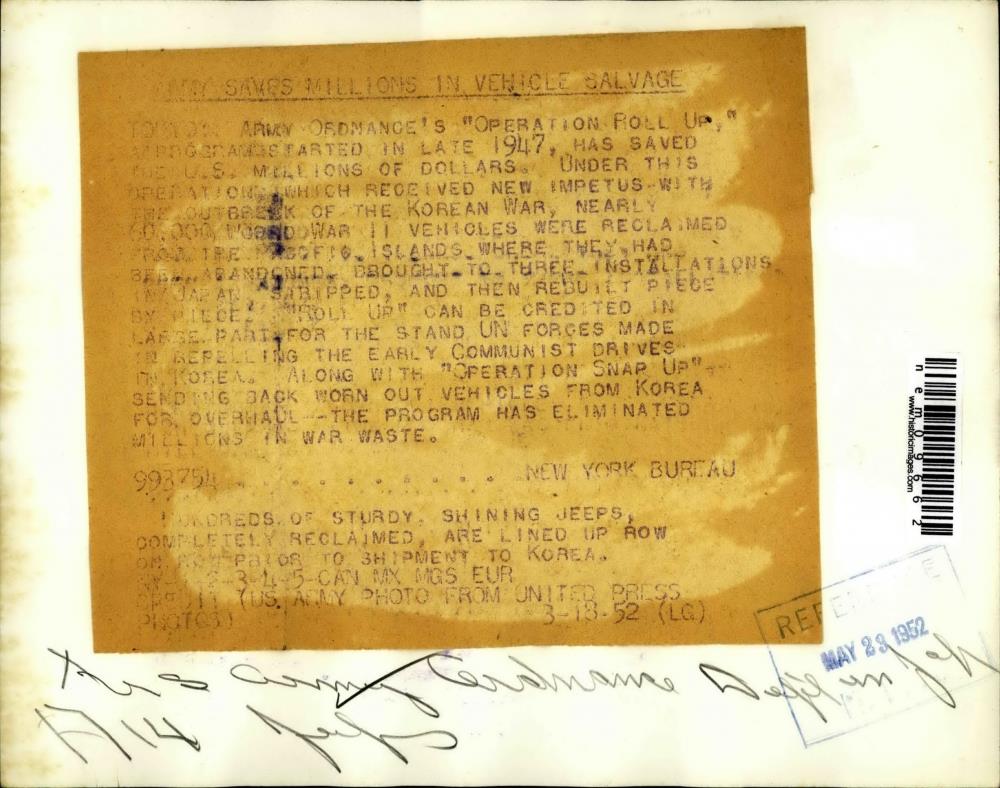 ARMY SAVES MILLIONS IN VEHICLE SALVAGE
ARMY ORDNANCE'S "OPERATION ROLL UP,"
A PROGRAM STARTED IN LATE 1947, HAS SAVED
THE U.S. MILLIONS OF DOLLARS. UNDER THIS
OPERATION, WHICH RECEIVED NEW IMPETUS WITH
THE OUTBREEK OF THE KOREAN WAR, NEARLY
60,000 WAR II VEHICLES WERE RECLAIMED
FROM THE PACIFIC ISLANDS WHERE THEY HAD
BEEN ABANDONED, BROUGHT TO THREE INSTALTATIONS
IN JAPAN, STRIPPED, AND THEN REBUILT PIECE
BY PIECE. "ROLL UP" CAN BE CREDITED IN
LARGE PART FOR THE STAND UN FORCES MADE
IN REPELLING THE EARLY COMMUNIST DRIVES
IN KOREA. ALONG WITH "OPERATION SNAP UP"--
SENDING BACK WORN OUT VEHICLES FROM KOREA
FOR OVERHAUL--THE PROGRAM HAS ELIMINATED
MILLIONS IN WAR WASTE.
993754 . . . . . . . . . . NEW YORK BUREAU
HUNDREDS OF STURDY, SHINING JEEPS,
COMPLETELY RECLAIMED, ARE LINED UP ROW
ON ROW PRIOR TO SHIPMENT TO KOREA.
2-3-4-5-CAN MX MGS EUR
(US ARMY PHOTO FROM UNITED PRESS
PHOTOS) 3-18-52 (LG)
nem09662
www.historicimages.com
MAY 23 1952
U S Army Ordnance